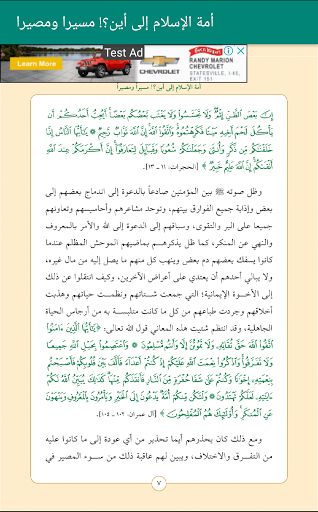 أمة الإسلام إلى أين؟! مسيرا ومصيرا
Test Ad
Learn More
CHEVROLET
RANDY MARION
CHEVROLET
STATESVILLE, I-40,
EXIT 151
أمة الإسلام إلى أين؟! مسيراً ومصيراً
إِنَّ بَعْضَ الظَّنِّ إِثْمٌ وَلَا تَجَسَّسُوا وَلَا يَغْتَب بَّعْضُكُم بَعْضًا أَيُحِبُّ أَحَدُكُمْ أَن
يَأْكُلَ لَحْمَ أَخِيهِ مَيْتًا فَكَرِهْتُمُوهُ وَاتَّقُوا اللَّهَ إِنَّ اللَّهَ تَوَّابٌ رَّحِيمٌ * يَا أَيُّهَا النَّاسُ إِنَّا
خَلَقْنَاكُم مِّن ذَكَرٍ وَأُنثَى وَجَعَلْنَاكُمْ شُعُوبًا وَقَبَائِلَ لِتَعَارَفُوا إِنَّ أَكْرَمَكُمْ عِندَ اللَّهِ
أَتْقَاكُمْ إِنَّ اللَّهَ عَلِيمٌ خَبِيرٌ ﴾ [الحجرات: ١١ - ١٣].
وظل صوته ﷺ بين المؤمنين صادعاً بالدعوة إلى اندماج بعضهم إلى
بعض وإذابة جميع الفوارق بينهم، وتوحد مشاعرهم وأحاسيسهم وتعاونهم
جميعا على البر والتقوى، وسباقهم إلى الدعوة إلى الله والأمر بالمعروف
والنهي عن المنكر، كما ظل يذكرهم بماضيهم الموحش المظلم عندما
كانوا يسفك بعضهم دم بعض وينهب كل منهم ما يصل إليه من مال غيره،
ولا يبالي أحدهم أن يعتدي على أعراض الآخرين، وكيف انتقلوا عن ذلك
إلى الأخوة الإيمانية؛ التي جمعت شتاتهم ونظمت حياتهم وهذبت
أخلاقهم وجردت طباعهم من كل ما كانت متلبسة به من أرجاس الحياة
الجاهلية، وقد انتظم شتيت هذه المعاني قول الله تعالى: ﴿يَا أَيُّهَا الَّذِينَ آمَنُوا
اتَّقُوا اللَّهَ حَقَّ تُقَاتِهِ وَلَا تَمُوتُنَّ إِلَّا وَأَنتُم مُّسْلِمُونَ * وَاعْتَصِمُوا بِحَبْلِ اللَّهِ جَمِيعًا
وَلَا تَفَرَّقُوا وَاذْكُرُوا نِعْمَتَ اللَّهِ عَلَيْكُمْ إِذْ كُنتُمْ أَعْدَاءً فَأَلَّفَ بَيْنَ قُلُوبِكُمْ فَأَصْبَحْتُم
بِنِعْمَتِهِ إِخْوَانًا وَكُنتُمْ عَلَى شَفَا حُفْرَةٍ مِّنَ النَّارِ فَأَنقَذَكُم مِّنْهَا كَذَلِكَ يُبَيِّنُ اللَّهُ لَكُمْ
آيَاتِهِ لَعَلَّكُمْ تَهْتَدُونَ * وَلْتَكُن مِّنكُمْ أُمَّةٌ يَدْعُونَ إِلَى الْخَيْرِ وَيَأْمُرُونَ بِالْمَعْرُوفِ وَيَنْهَوْنَ
عَنِ الْمُنكَرِ وَأُولَئِكَ هُمُ الْمُفْلِحُونَ﴾ [آل عمران: ١٠٢ - ١٠٥].
ومع ذلك كان يحذرهم أيما تحذير من أي عودة إلى ما كانوا عليه
من التفرق والاختلاف، ويبين لهم عاقبة ذلك من سوء المصير في
٧